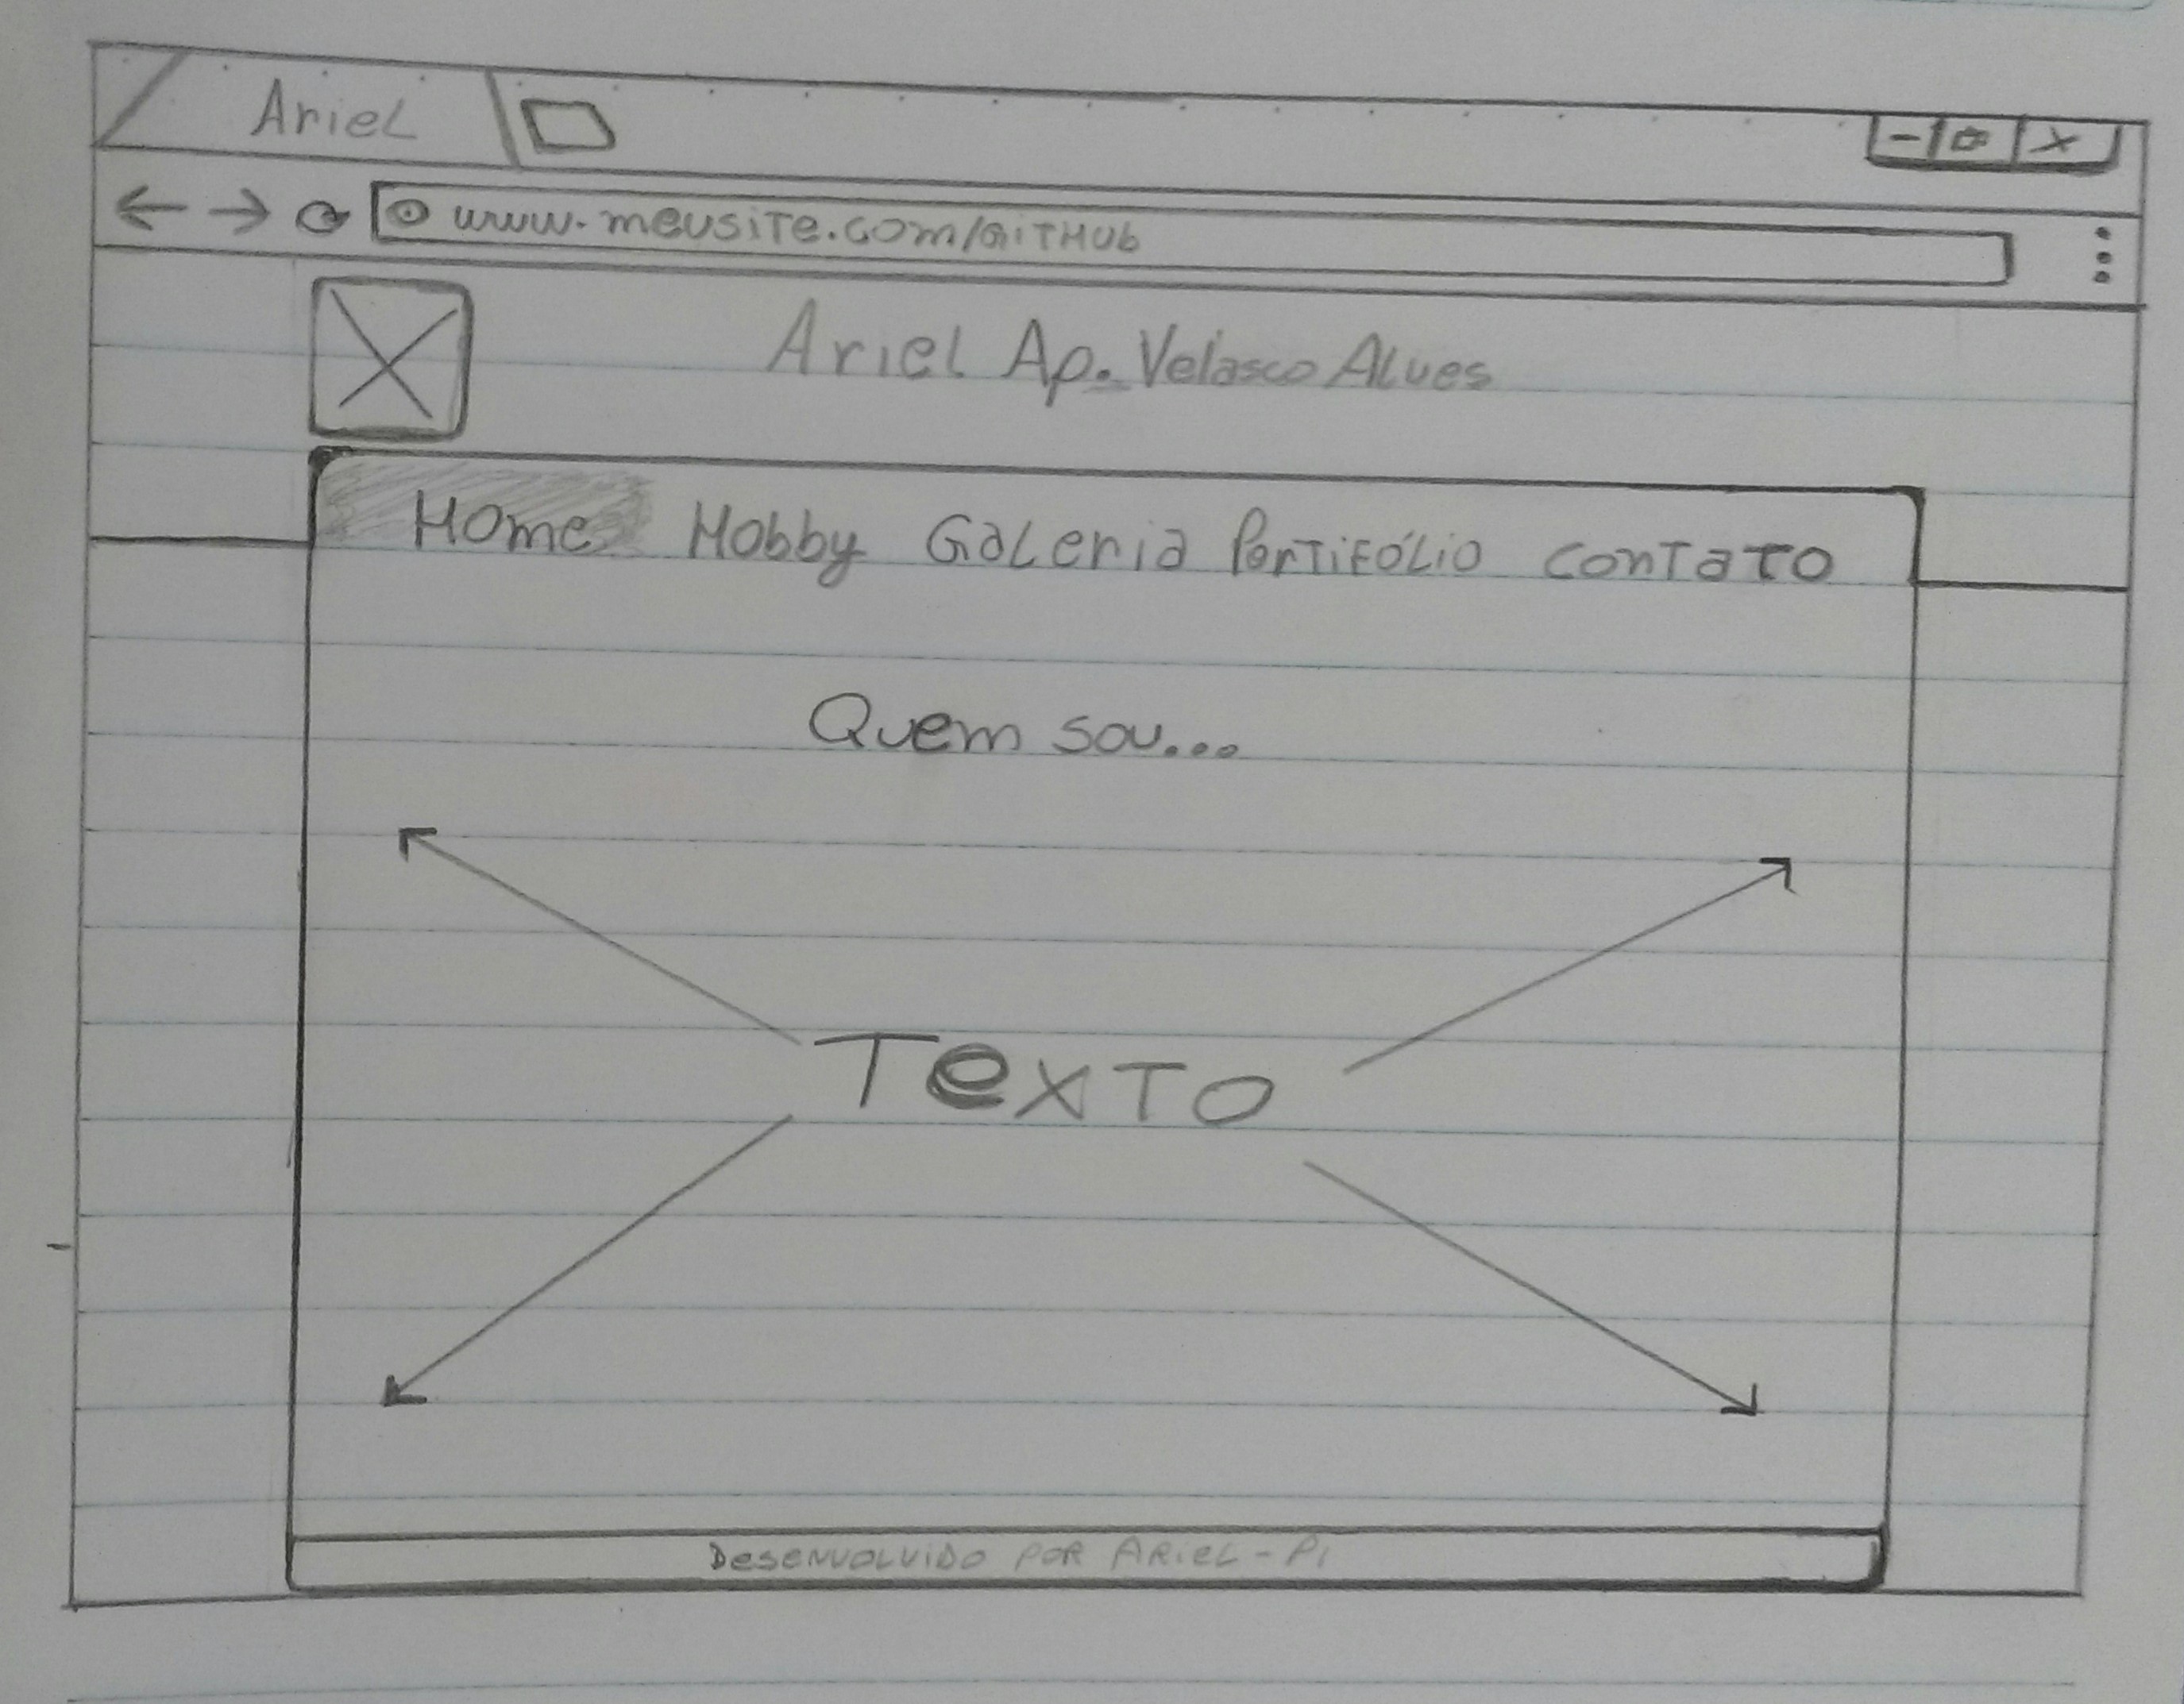 Ariel
www.meusite.com/GitHub
Ariel Ap. Velasco Alves
Home Hobby Galeria Portifólio contato
Quem sou...
Texto
Desenvolvido por Ariel - PI